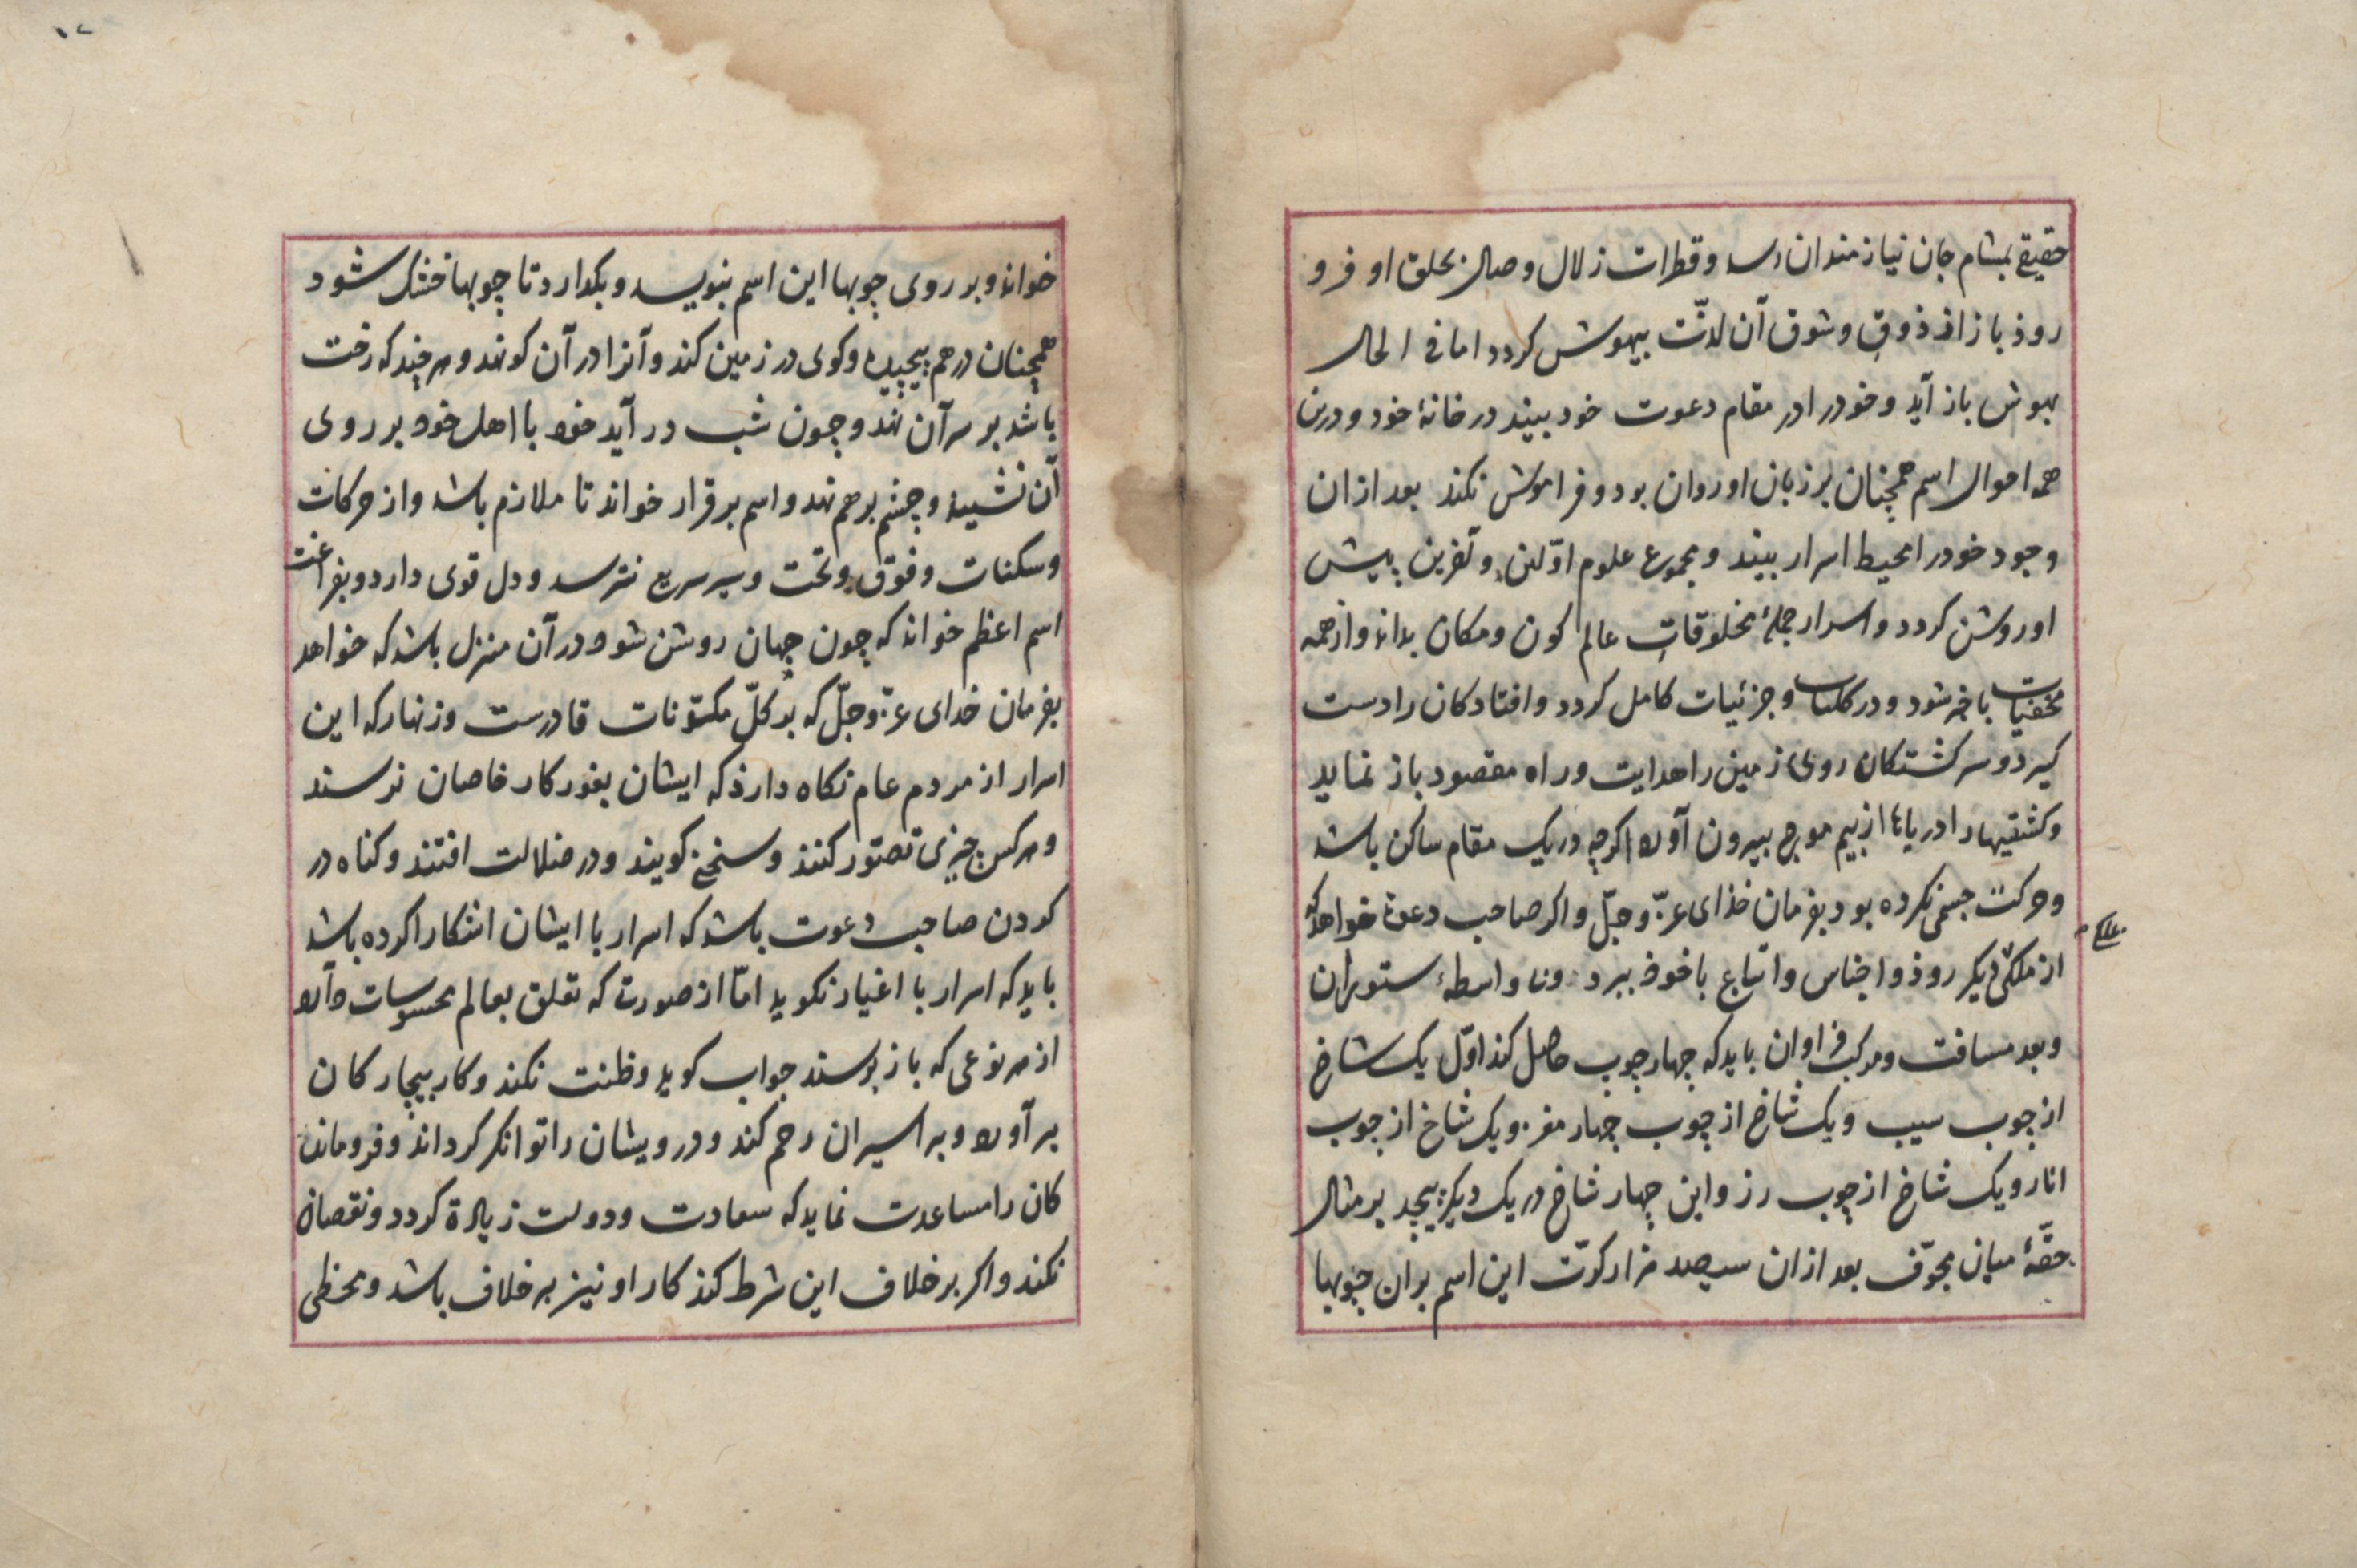 حقیقی بمشام جان نیازمندان رسد و قطرات زلال وصال بحلق او فرو
روذ باز از ذوق و شوق آن لذّت بیهوش کردد اما فی الحال
بهوش باز آید و خود را در مقام دعوت خود بیند در خانهٔ خود و درین
همه احوال اسم همچنان بر زبان او روان بود و فراموش نکند بعد ازان
وجود خود را محیط اسرار بیند و مجموع علوم اوّلین و آخرین پیش
او روشن کردد و اسرار جملهٔ مخلوقات عالم کون و مکان بداند و از همه
مخفیات باخبر شود و در کلیات و جزئیات کامل کردد و افتادکان را دست
کیرد و سرکشتکان روی زمین را هدایت و راه مقصود باز نماید
و کشتیها را در یاها از بیم موج بیرون آورد اکرچه در یک مقام ساکن باشد
و حرکت جسمی نکرده بود بفرمان خذای عزّ و جلّ و اکر صاحب دعوت خواهد که
از ملکی بملکی دیکر روذ و اجناس و اتباع با خوذ ببرد و نا واسطهٔ ستوران
و بعد مسافت و مرکب فراوان باید که چهار چوب حاصل کند اوّل یک شاخ
از چوب سیب و یک شاخ از چوب چهار مغز و یک شاخ از چوب
انار و یک شاخ از چوب رز و این چهار شاخ در یک دیکر پیچد بر مثال
حقّهٔ میان مجوّف بعد ازان سیصد هزار کرّت این اسم بران چوبها
۱۷
خواند و بر روی چوبها این اسم بنویسد و بکذارد تا چوبها خشک شود
همچنان درهم پیچیده و کوی در زمین کند و آنرا در آن کو نهد و هر چند که رخت
باشد بر سر آن نهد و چون شب در آید خود با اهل خود بر روی
آن نشیند و چشم برهم نهد و اسم برقرار خواند تا ملازم باشد و از حرکات
و سکنات و فوق و تحت و سیر سریع نترسد و دل قوی دارد و بفراغت
اسم اعظم خواند که چون جهان روشن شود در آن منزل باشد که خواهد
بفرمان خدای عزّ و جلّ که بر کلّ مکنونات قادرست و زنهار که این
اسرار از مردم عام نکاه دارذ که ایشان بغور کار خاصان نرسند
و هر کس چیزی تصتور کنند و سخنی کویند و در ضلالت افتند و کناه در
کردن صاحب دعوت باشد که اسرار با ایشان اشکارا کرده باشد
باید که اسرار با اغیار نکوید امّا از صورت که تعلق بعالم محسوسات دارد
از هر نوعی که باز پرسند جواب کوید و ظنت نکند و کار بیچارکان
برآورد و بر اسیران رحم کند و درویشان را توانکر کرداند و فرومانده
کان را مساعدت نماید که سعادت و دولت زیادة کردد و نقصان
نکند و اکر بر خلاف این شرط کند کار او نیز بر خلاف باشد و بخطی